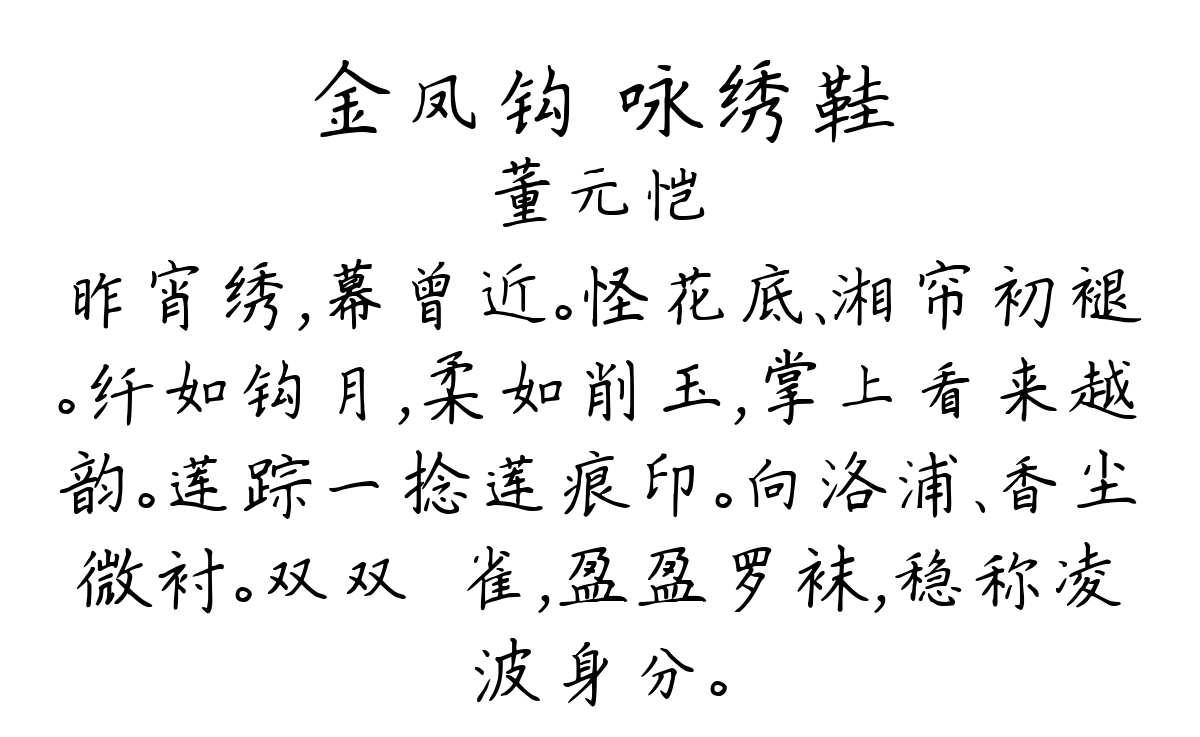 金凤钩 咏绣鞋
董元恺
昨宵绣,幕曾近。怪花底、湘帘初褪
。纤如钩月,柔如削玉,掌上看来越
韵。莲踪一捻莲痕印。向洛浦、香尘
微衬。双双 雀,盈盈罗袜,稳称凌
波身分。